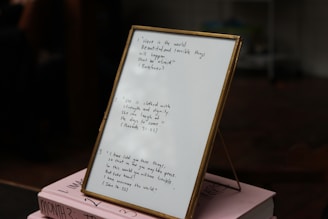 "Here is the world.
Beautiful and terrible things
will happen.
Don't be afraid."
she is clothed with
strength and dignity
she can laugh at
the days to come."
(Proverbs 31:25)
"I have told you these things,
so that in me you may have peace.
In this world you will have trouble.
But take heart!
I have overcome the world."